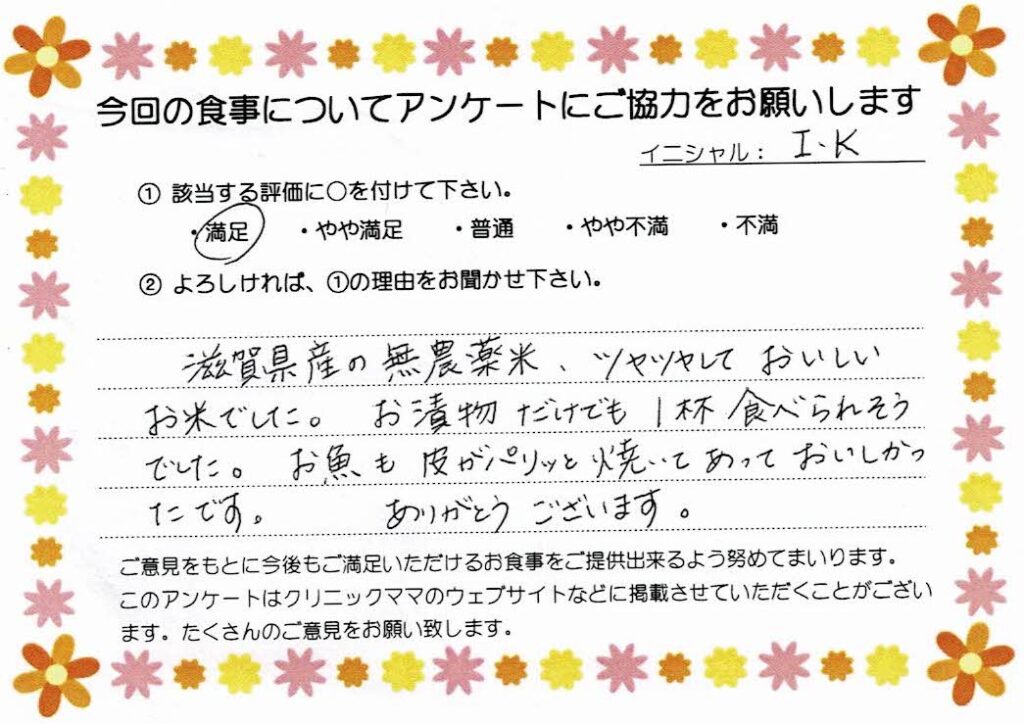 今回の食事についてアンケートにご協力をお願いします
イニシャル： I.K
① 該当する評価に○を付けて下さい。
・満足 ・やや満足 ・普通 ・やや不満 ・不満
② よろしければ、①の理由をお聞かせ下さい。
滋賀県産の無農薬米、ツヤツヤして おいしい
お米でした。 お漬物 だけでも 1杯 食べられそう
でした。 お魚も 皮がパリッと 焼いてあって おいしかっ
たです。 ありがとう ございます。
ご意見をもとに今後もご満足いただけるお食事をご提供出来るよう努めてまいります。
このアンケートはクリニックママのウェブサイトなどに掲載させていただくことがござい
ます。たくさんのご意見をお願い致します。